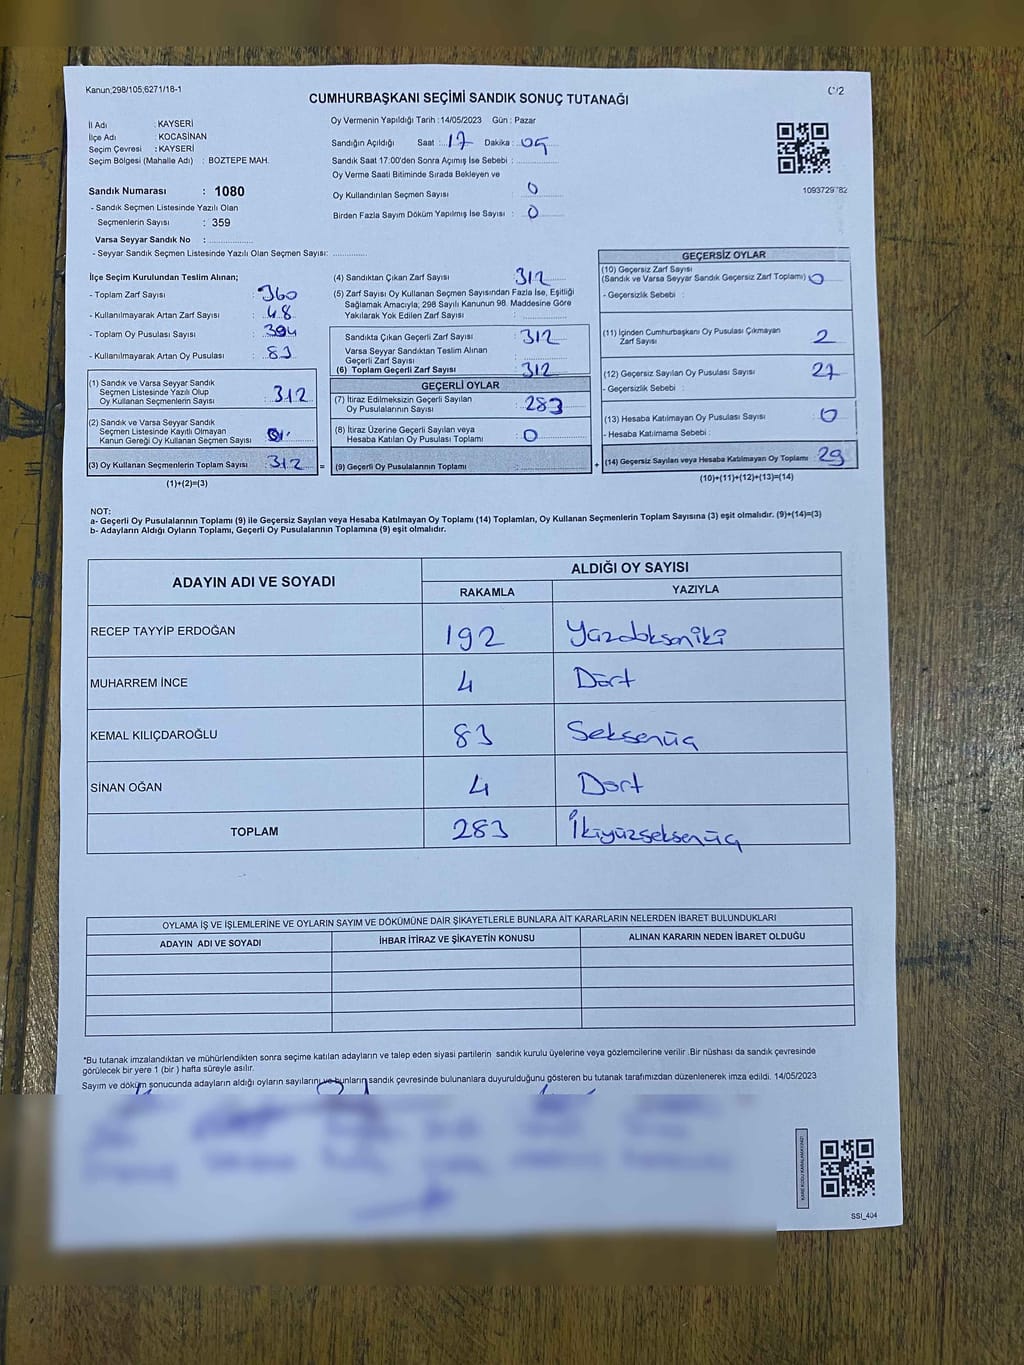 Kanun;298/105,6271/18-1
CUMHURBAŞKANI SEÇİMİ SANDIK SONUÇ TUTANAĞI
İl Adı : KAYSERİ
İlçe Adı : KOCASİNAN
Seçim Çevresi : KAYSERİ
Seçim Bölgesi (Mahalle Adı) : BOZTEPE MAH.
Sandık Numarası : 1080
- Sandık Seçmen Listesinde Yazılı Olan
Seçmenlerin Sayısı : 359
Varsa Seyyar Sandık No :
- Seyyar Sandık Seçmen Listesinde Yazılı Olan Seçmen Sayısı:
Oy Vermenin Yapıldığı Tarih :14/05/2023 Gün : Pazar
Sandığın Açıldığı Saat : 17 Dakika : 05
Sandık Saat 17:00'den Sonra Açımış İse Sebebi :
Oy Verme Saati Bitiminde Sırada Bekleyen ve
Oy Kullandırılan Seçmen Sayısı : 0
Birden Fazla Sayım Döküm Yapılmış İse Sayısı : 0
İlçe Seçim Kurulundan Teslim Alınan;
- Toplam Zarf Sayısı : 360
- Kullanılmayarak Artan Zarf Sayısı : 48
- Toplam Oy Pusulası Sayısı : 394
- Kullanılmayarak Artan Oy Pusulası : 83
(1) Sandık ve Varsa Seyyar Sandık
Seçmen Listesinde Yazılı Olup
Oy Kullanan Seçmenlerin Sayısı : 312
(2) Sandık ve Varsa Seyyar Sandık
Seçmen Listesinde Kayıtlı Olmayan
Kanun Gereği Oy Kullanan Seçmen Sayısı :
(3) Oy Kullanan Seçmenlerin Toplam Sayısı : 312 =
(1)+(2)=(3)
(4) Sandıktan Çıkan Zarf Sayısı : 312
(5) Zarf Sayısı Oy Kullanan Seçmen Sayısından Fazla İse, Eşitliği
Sağlamak Amacıyla; 298 Sayılı Kanunun 98. Maddesine Göre
Yakılarak Yok Edilen Zarf Sayısı :
Sandıkta Çıkan Geçerli Zarf Sayısı : 312
Varsa Seyyar Sandıktan Teslim Alınan
Geçerli Zarf Sayısı :
(6) Toplam Geçerli Zarf Sayısı : 312
GEÇERLİ OYLAR
(7) İtiraz Edilmeksizin Geçerli Sayılan
Oy Pusulalarının Sayısı : 283
(8) İtiraz Üzerine Geçerli Sayılan veya
Hesaba Katılan Oy Pusulası Toplamı : 0
(9) Geçerli Oy Pusulalarının Toplamı : +
GEÇERSİZ OYLAR
(10) Geçersiz Zarf Sayısı
(Sandık ve Varsa Seyyar Sandık Geçersiz Zarf Toplamı) : 0
- Geçersizlik Sebebi :
(11) İçinden Cumhurbaşkanı Oy Pusulası Çıkmayan
Zarf Sayısı : 2
(12) Geçersiz Sayılan Oy Pusulası Sayısı : 27
- Geçersizlik Sebebi :
(13) Hesaba Katılmayan Oy Pusulası Sayısı : 0
- Hesaba Katılmama Sebebi :
(14) Geçersiz Sayılan veya Hesaba Katılmayan Oy Toplamı : 29
(10)+(11)+(12)+(13)=(14)
NOT:
a- Geçerli Oy Pusulalarının Toplamı (9) ile Geçersiz Sayılan veya Hesaba Katılmayan Oy Toplamı (14) Toplamları, Oy Kullanan Seçmenlerin Toplam Sayısına (3) eşit olmalıdır. (9)+(14)=(3)
b- Adayların Aldığı Oyların Toplamı, Geçerli Oy Pusulalarının Toplamına (9) eşit olmalıdır.
ADAYIN ADI VE SOYADI
ALDIĞI OY SAYISI
RAKAMLA YAZIYLA
RECEP TAYYİP ERDOĞAN 192 Yüzdoksaniki
MUHARREM İNCE 4 Dört
KEMAL KILIÇDAROĞLU 83 Seksenüç
SİNAN OĞAN 4 Dört
TOPLAM 283 İkiyüzseksenüç
OYLAMA İŞ VE İŞLEMLERİNE VE OYLARIN SAYIM VE DÖKÜMÜNE DAİR ŞİKAYETLERLE BUNLARA AİT KARARLARIN NELERDEN İBARET BULUNDUKLARI
ADAYIN ADI VE SOYADI İHBAR İTİRAZ VE ŞİKAYETİN KONUSU ALINAN KARARIN NEDEN İBARET OLDUĞU
*Bu tutanak imzalandıktan ve mühürlendikten sonra seçime katılan adayların ve talep eden siyasi partilerin sandık kurulu üyelerine veya gözlemcilerine verilir .Bir nüshası da sandık çevresinde
görülecek bir yere 1 (bir ) hafta süreyle asılır.
Sayım ve döküm sonucunda adayların aldığı oyların sayılarını ve bunların sandık çevresinde bulunanlara duyurulduğunu gösteren bu tutanak tarafımızdan düzenlenerek imza edildi. 14/05/2023
SSI_404